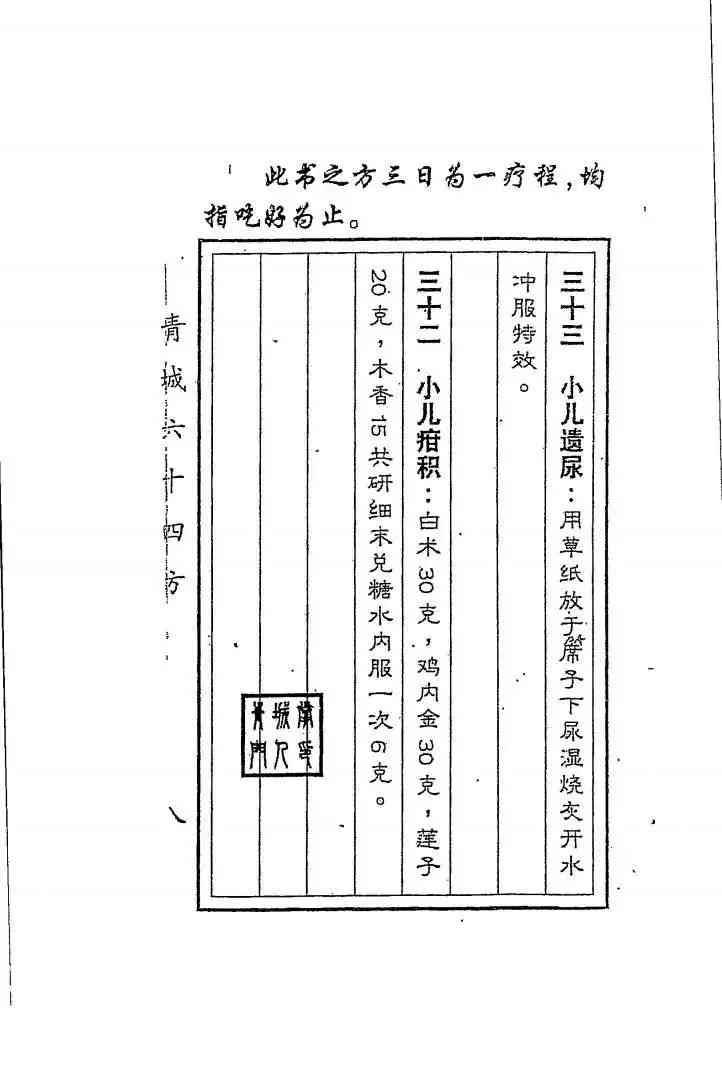 此书之方三日为一疗程，均
指吃好为止。
三十三 小儿遗尿：用草纸放于席子下尿湿烧灰开水
冲服特效。
三十二 小儿疳积：白术30克，鸡内金30克，莲子
20克，木香15共研细末兑糖水内服一次6克。
青城六十四方
八